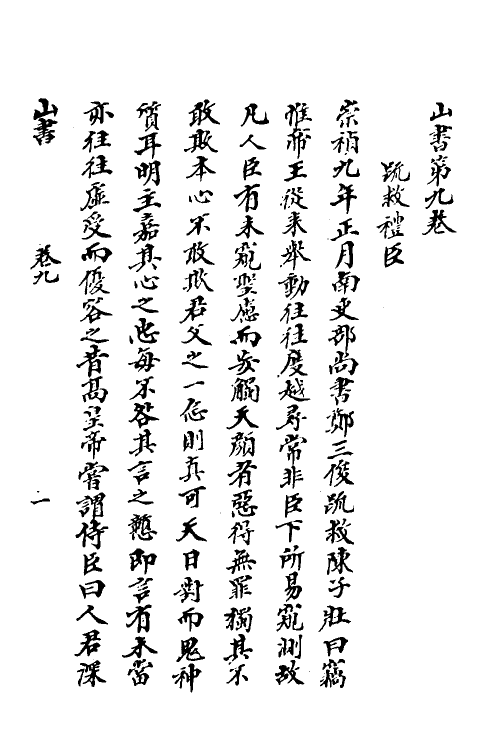 山書第九卷
疏救禮臣
崇禎九年正月南吏部尚書鄭三俊疏救陳子壯曰竊
惟帝王從来舉動往往度越尋常非臣下所易窺測故
凡人臣有未窺聖慮而妄觸天顔者惡得無罪獨其不
敢欺本心不敢欺君父之一念則真可天日對而鬼神
質耳明主嘉其心之忠每不咎其言之戇即言有未當
亦往往虛受而優容之昔髙皇帝嘗謂侍臣曰人君深
山書
卷九
一